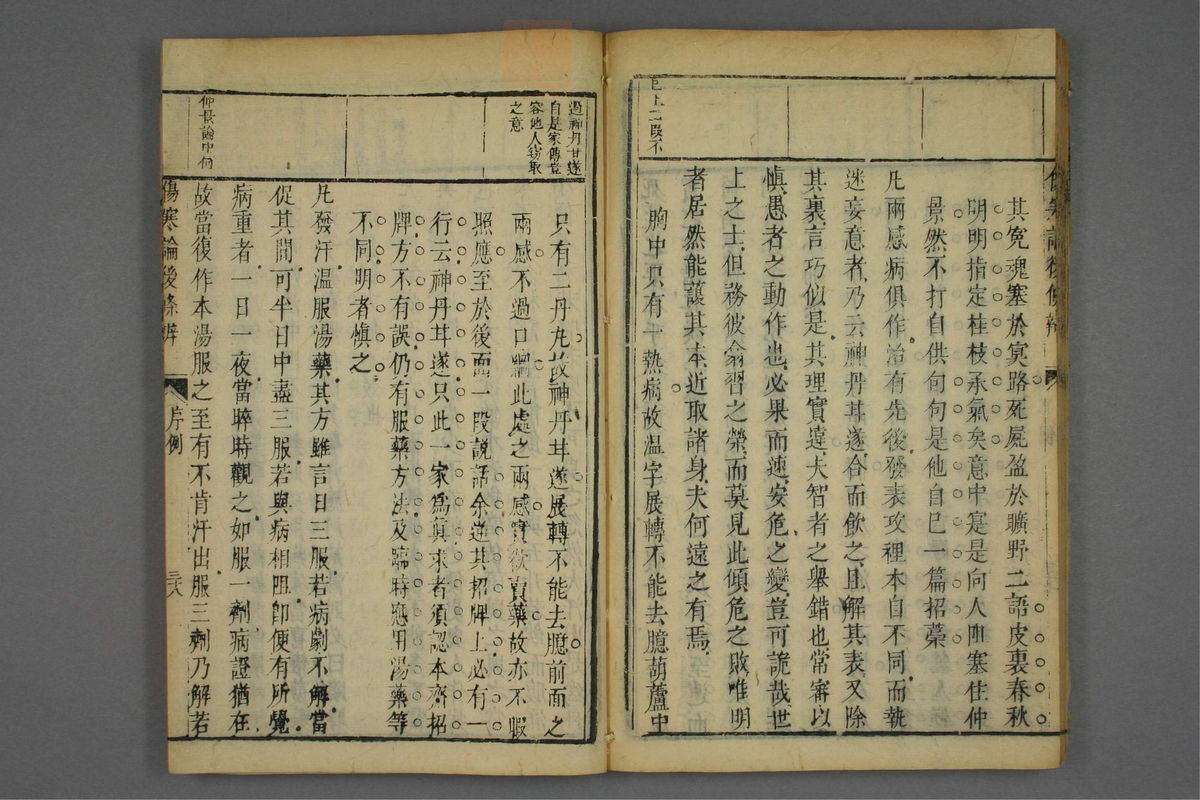 傷寒論後條辨
其寃魂塞於冥路死屍盈於曠野二語皮裏春秋
明明指定桂枝承氣矣意中寔是向人血塞住仲
景然不打自供句句是他自已一篇招藁
凡兩感病俱作治有先後發表攻裡本自不同而執
迷妄意者乃云神丹甘遂合而飲之且解其表又除
其裏言巧似是其理實違夫智者之舉錯也常審以
慎愚者之動作也必果而速安危之變豈可詭哉世
上之士但務彼翕習之榮而莫見此傾危之敗唯明
者居然能護其本近取諸身夫何遠之有焉
已上二段不
胸中只有一熱病故溫字展轉不能去臆葫蘆中
過神丹甘遂
自是家傳豈
容他人竊取
之意
只有二丹丸故神丹甘遂展轉不能去臆前面之
兩感不過口綱此處之兩感實欲賣藥故亦不暇
照應至於後面一段說話余逆其招牌上必有一
行云神丹甘遂只此一家爲眞求者須認本齋招
牌方不有誤仍有服藥方法及臨時應用湯藥等
不同明者慎之
凡發汗溫服湯藥其方雖言日三服若病劇不解當
促其間可半日中盡三服若與病相阻卽便有所覺
病重者一日一夜當晬時觀之如服一劑病證猶在
仲景論中何
故當復作本湯服之至有不肯汗出服三劑乃解若
傷寒論後條辨
序例
三六